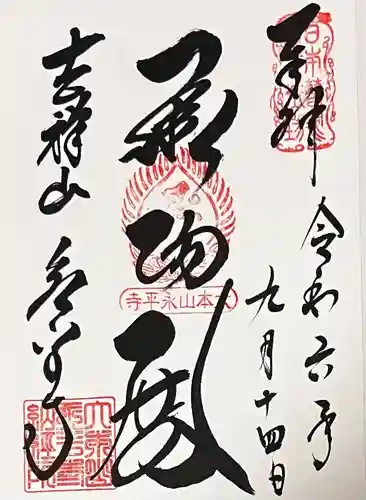 奉拝
令和六年
九月十四日
承陽殿
大本山永平寺
吉祥山 永平寺